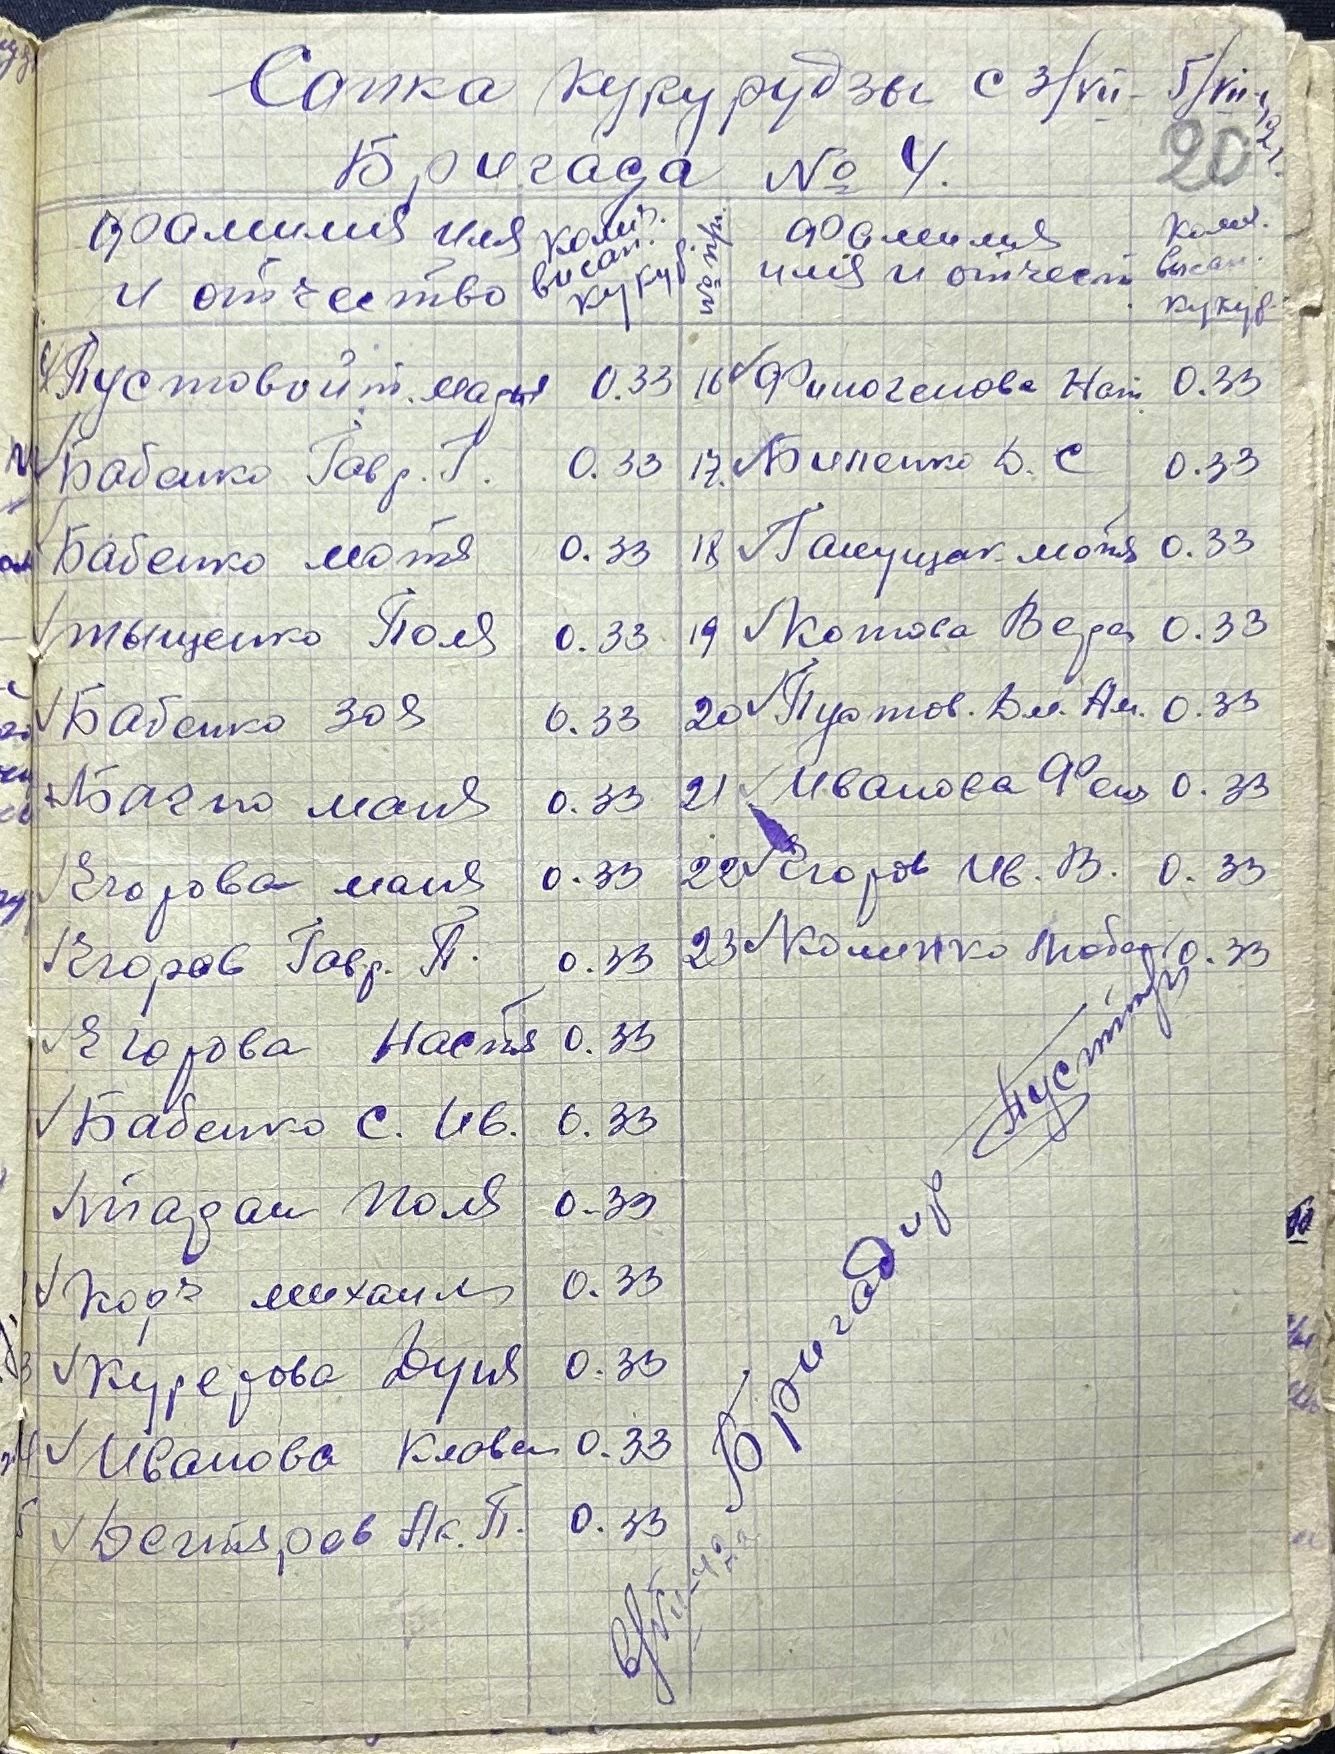 Сапка кукурудзы с 3/VII - 5/VII-42г.
20
Бригада № 4.
Фамилия имя
и отчество
колич.
высап.
кукуруд.
№ пр.
Фамилия
имя и отчест.
колич.
высап.
кукур.
Пустовойт. Мария 0.33
Бабенко Гавр. Г. 0.33
Бабенко Мотя 0.33
Тыщенко Поля 0.33
Бабенко Зоя 0.33
Маня 0.33
Егорова Маня 0.33
Егоров Гавр. П. 0.33
Егорова Настя 0.33
Бабенко С. Ив. 0.33
Поля 0.33
Корж Михаил 0.33
Дуня 0.33
Иванова Клава 0.33
Дегтяров Ак. П. 0.33
16 Финогенова Нат 0.33
17. Д. С 0.33
18 Мотя 0.33
19 Котова Вера 0.33
20 Пустов. Дм. Ан. 0.33
21 Иванова Феня 0.33
22 Егоров Ив. В. 0.33
23 0.33
Бригадир
6/VII-42г.